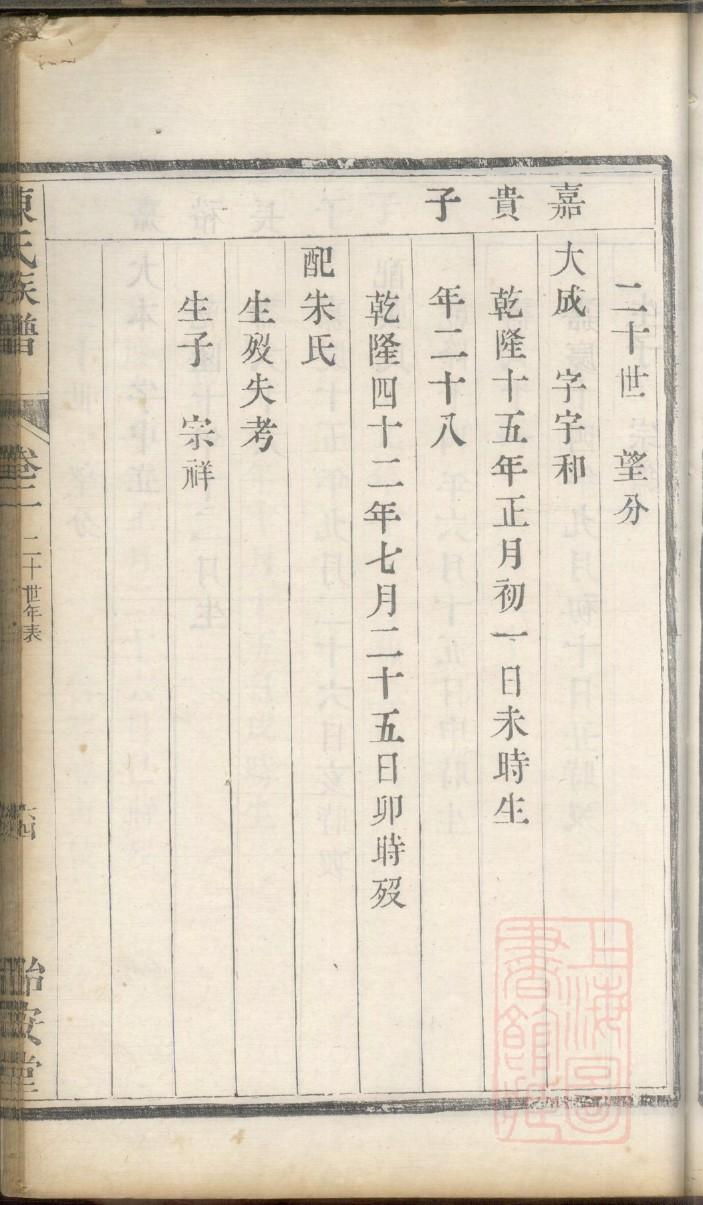 二十世 望分
嘉 大成 字宇和
貴 乾隆十五年正月初一日未時生
子 年二十八
乾隆四十二年七月二十五日卯時歿
配朱氏
生歿失考
生子 宗祥
陳氏族譜 卷二 二十世年表 六四 詒安堂
上海圖書館藏